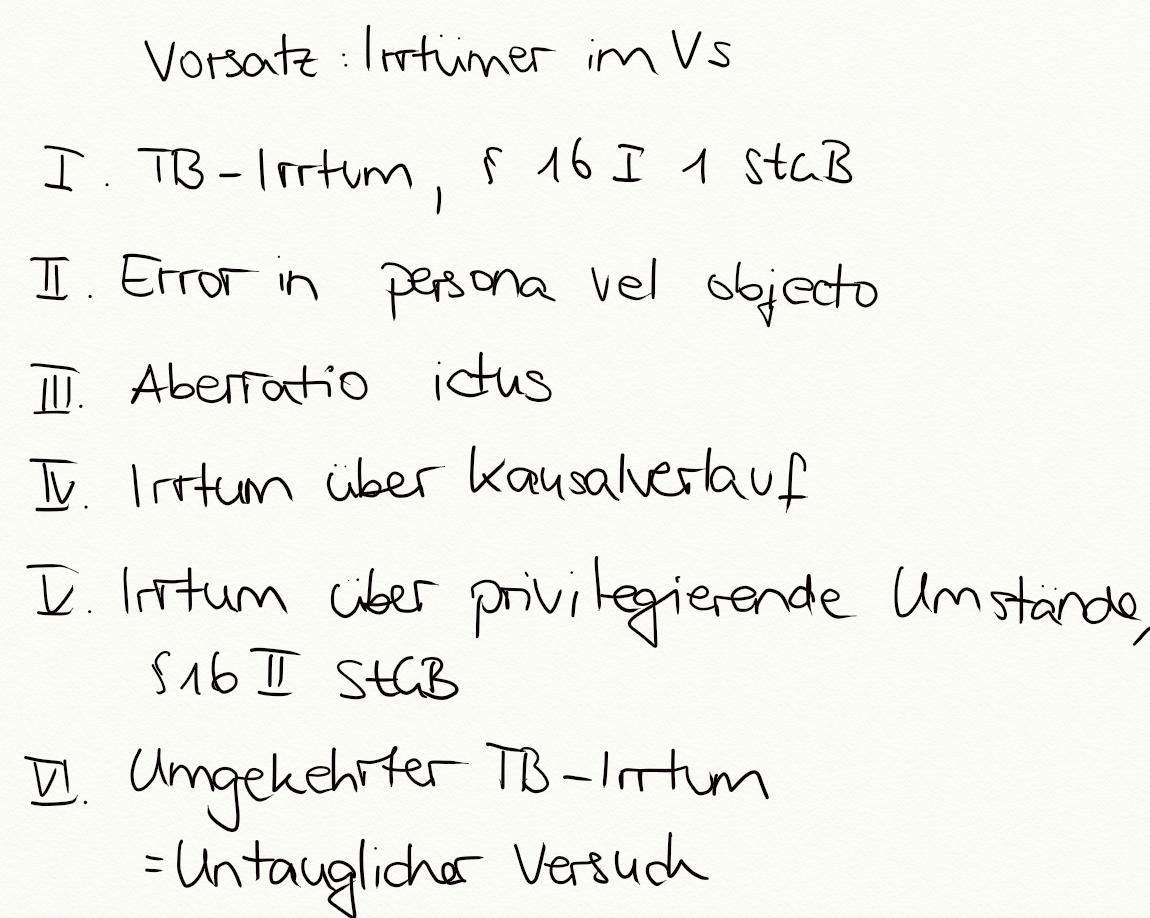 Vorsatz: Irrtümer im Vs
I. TB-Irrtum, § 16 I 1 StGB
II. Error in persona vel objecto
III. Aberratio ictus
IV. Irrtum über Kausalverlauf
V. Irrtum über privilegierende Umstände,
§ 16 II StGB
VI. Umgekehrter TB-Irrtum
= Untauglicher Versuch